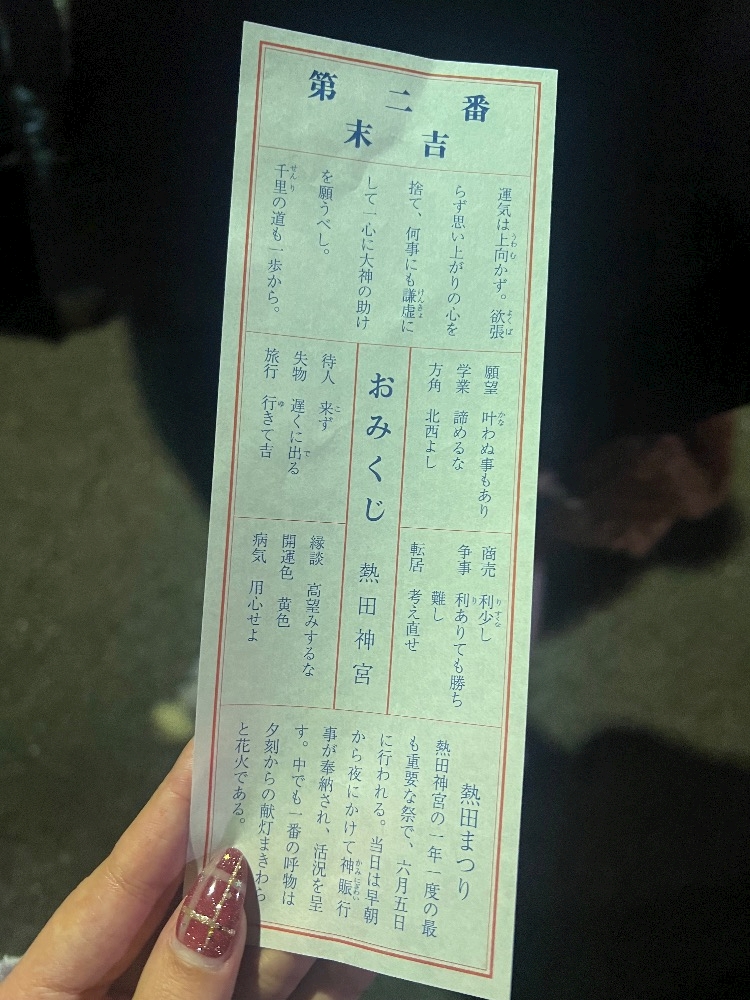 第二番
末吉
運気は上向かず。欲張
らず思い上がりの心を
捨て、何事にも謙虚に
して一心に大神の助け
を願うべし。
千里の道も一歩から。
願望 叶わぬ事もあり
学業 諦めるな
方角 北西よし
商売 利少し
争事 利ありても勝ち
難し
転居 考え直せ
おみくじ 熱田神宮
待人 来ず
失物 遅くに出る
旅行 行きて吉
縁談 高望みするな
開運色 黄色
病気 用心せよ
熱田まつり
熱田神宮の一年一度の最
も重要な祭で、六月五日
に行われる。当日は早朝
から夜にかけて神賑行
事が奉納され、活況を呈
す。中でも一番の呼物は
夕刻からの献灯まきわら
と花火である。